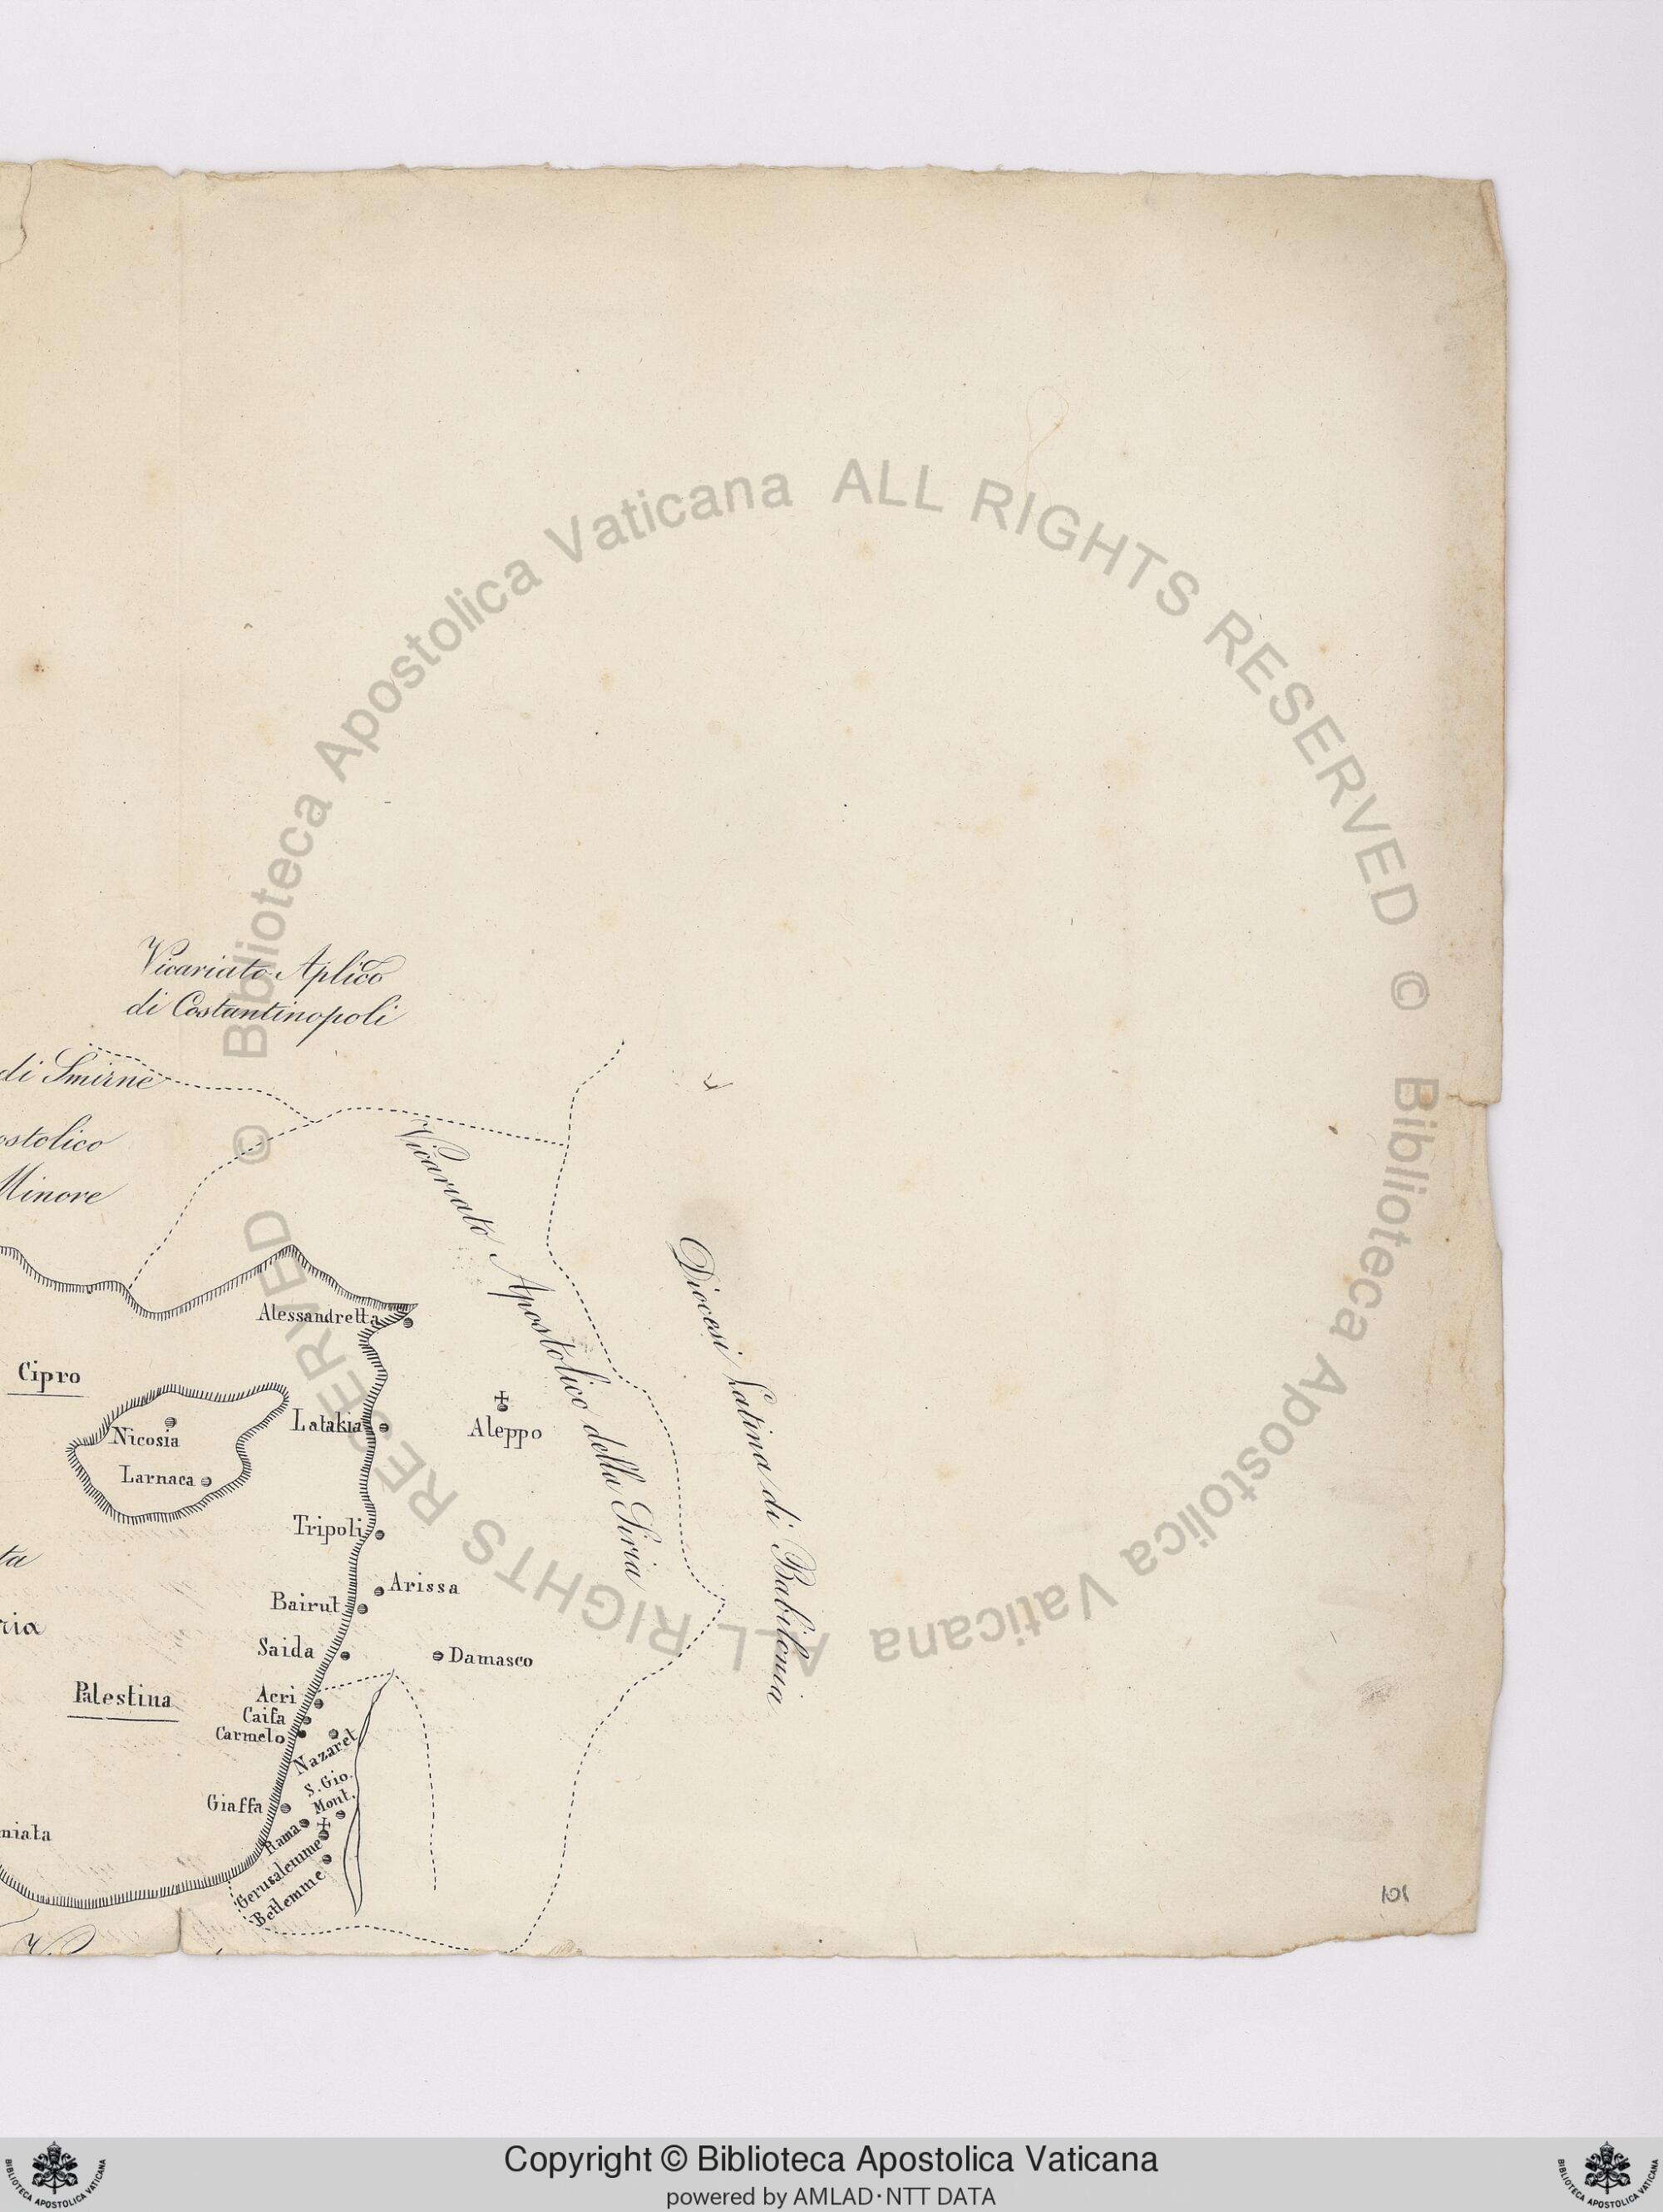 Vicariato Aplico
di Costantinopoli
di Smirne
ostolico
Minore
Vicariato Apostolico della Siria
Diocesi Latina di Babilonia
Alessandretta
Cipro
Nicosia
Larnaca
Latakia
Aleppo
Tripoli
Arissa
Bairut
Saida
Damasco
ta
ria
Palestina
Acri
Caifa
Carmelo
Nazaret
S. Gio.
Mont.
Giaffa
Rama
Gerusalemme
Betlemme
miata
101
© Biblioteca Apostolica Vaticana ALL RIGHTS RESERVED
© Biblioteca Apostolica Vaticana ALL RIGHTS RESERVED
Copyright © Biblioteca Apostolica Vaticana
powered by AMLAD·NTT DATA
BIBLIOTECA APOSTOLICA VATICANA
BIBLIOTECA APOSTOLICA VATICANA